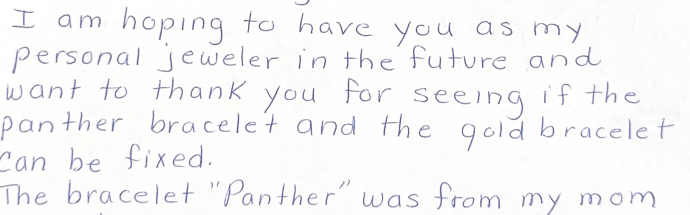 I am hoping to have you as my
personal jeweler in the future and
want to thank you for seeing if the
panther bracelet and the gold bracelet
can be fixed.
The bracelet "Panther" was from my mom